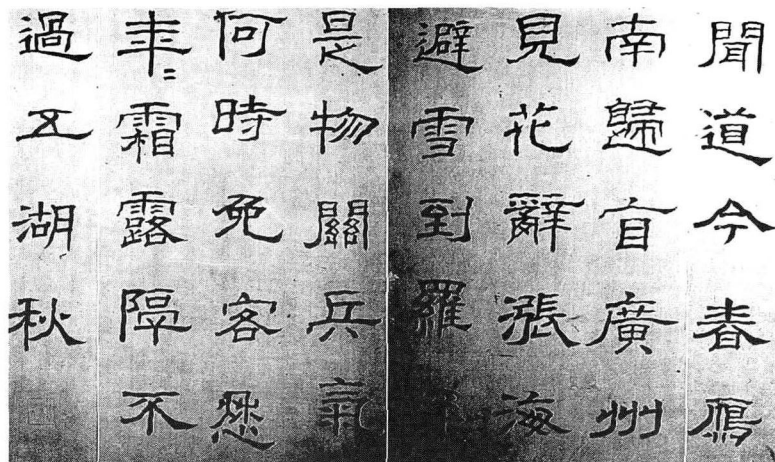 聞道今春鴈
南歸自廣州
見花辭漲海
避雪到羅
是物關兵氣
何時免客愁
年〻霜露隔不
過五湖秋